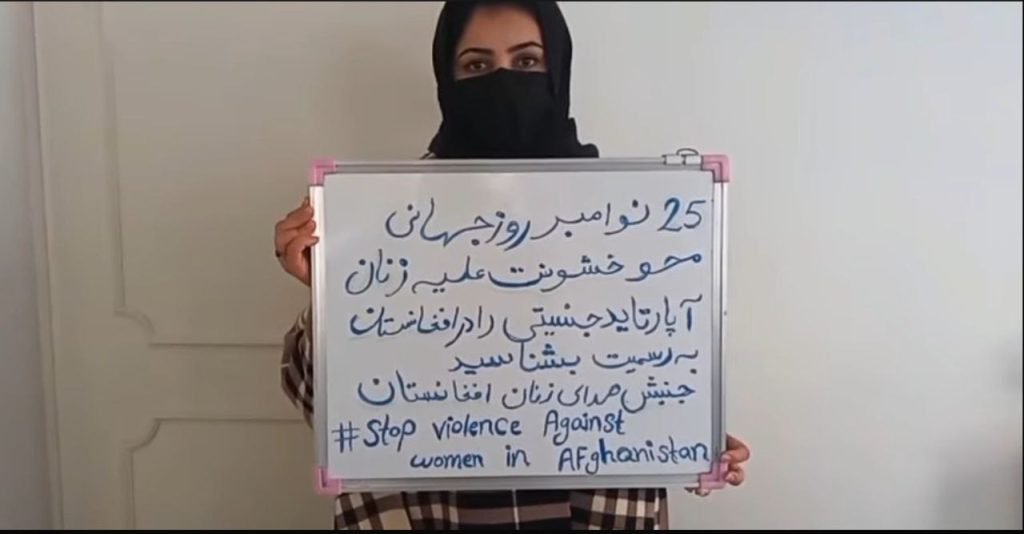 25 نوامبر روز جهانی
محو خشونت علیه زنان
آپارتاید جنسیتی را در افغانستان
به رسمیت بشناسید
جنبش صدای زنان افغانستان
#Stop violence Against
women in AFghanistan